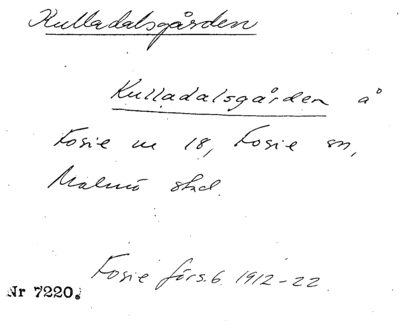 Kulladalsgården
Kulladalsgården å
Fosie nr 18, Fosie sn,
Malmö stad.
Fosie förs.b. 1912-22.
Nr 7220.